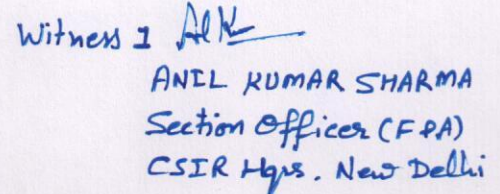 Witness 1
ANIL KUMAR SHARMA
Section Officer (F&A)
CSIR Hqrs. New Delhi